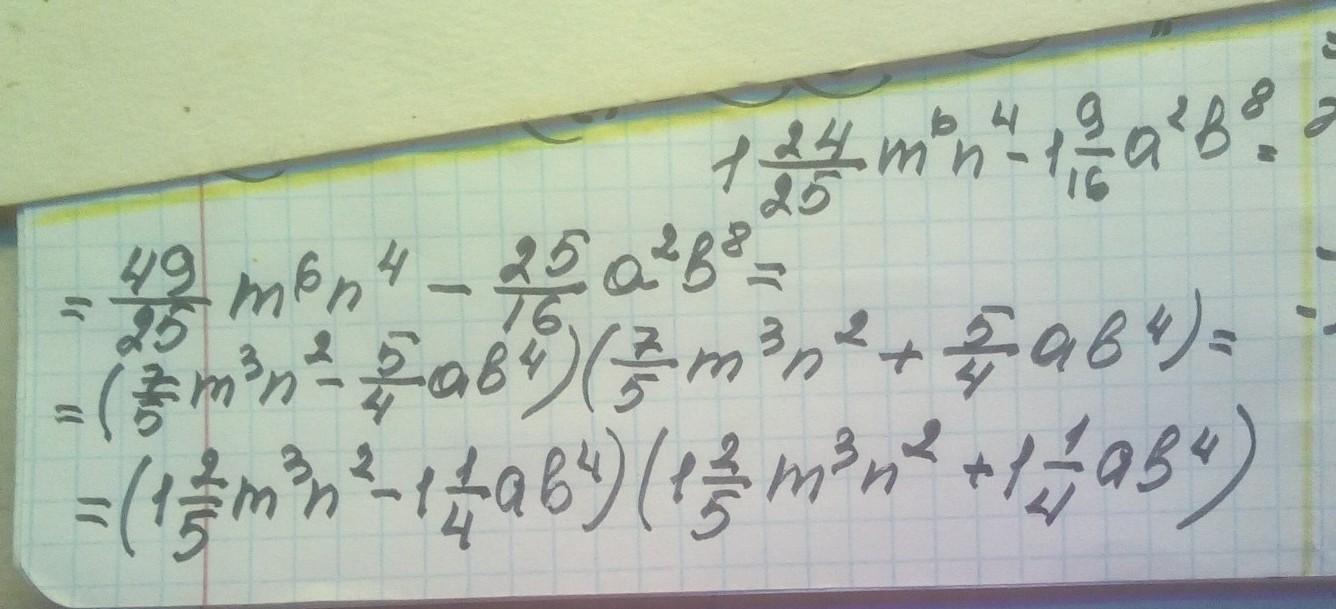 1 24/25 m⁶n⁴ - 1 9/16 a²b⁸ =
= 49/25 m⁶n⁴ - 25/16 a²b⁸ =
= (7/5 m³n² - 5/4 ab⁴)(7/5 m³n² + 5/4 ab⁴) =
= (1 2/5 m³n² - 1 1/4 ab⁴)(1 2/5 m³n² + 1 1/4 ab⁴)